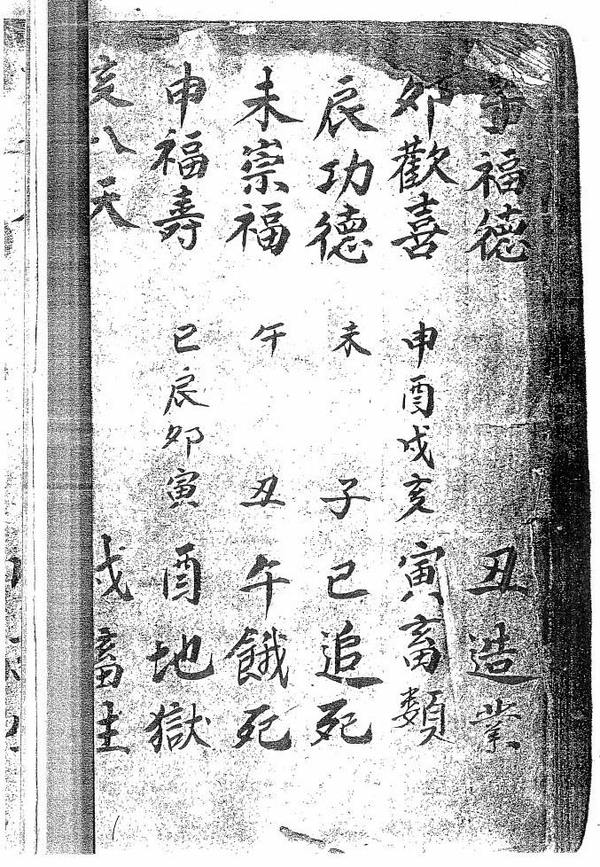 子福德 丑造業
卯歡喜 申酉戌亥 寅畜類
辰功德 未 子 巳追死
未崇福 午 丑 午餓死
申福壽 巳辰卯寅 酉地獄
亥八天 戌畜生